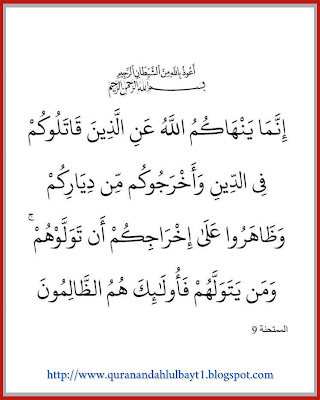 أعوذ بالله من الشيطان الرجيم
بسم الله الرحمن الرحيم
إِنَّمَا يَنْهَاكُمُ اللَّهُ عَنِ الَّذِينَ قَاتَلُوكُمْ
فِي الدِّينِ وَأَخْرَجُوكُم مِّن دِيَارِكُمْ
وَظَاهَرُوا عَلَىٰ إِخْرَاجِكُمْ أَن تَوَلَّوْهُمْ ۚ
وَمَن يَتَوَلَّهُمْ فَأُولَٰئِكَ هُمُ الظَّالِمُونَ
الممتحنة 9
http://www.quranandahlulbayt1.blogspot.com